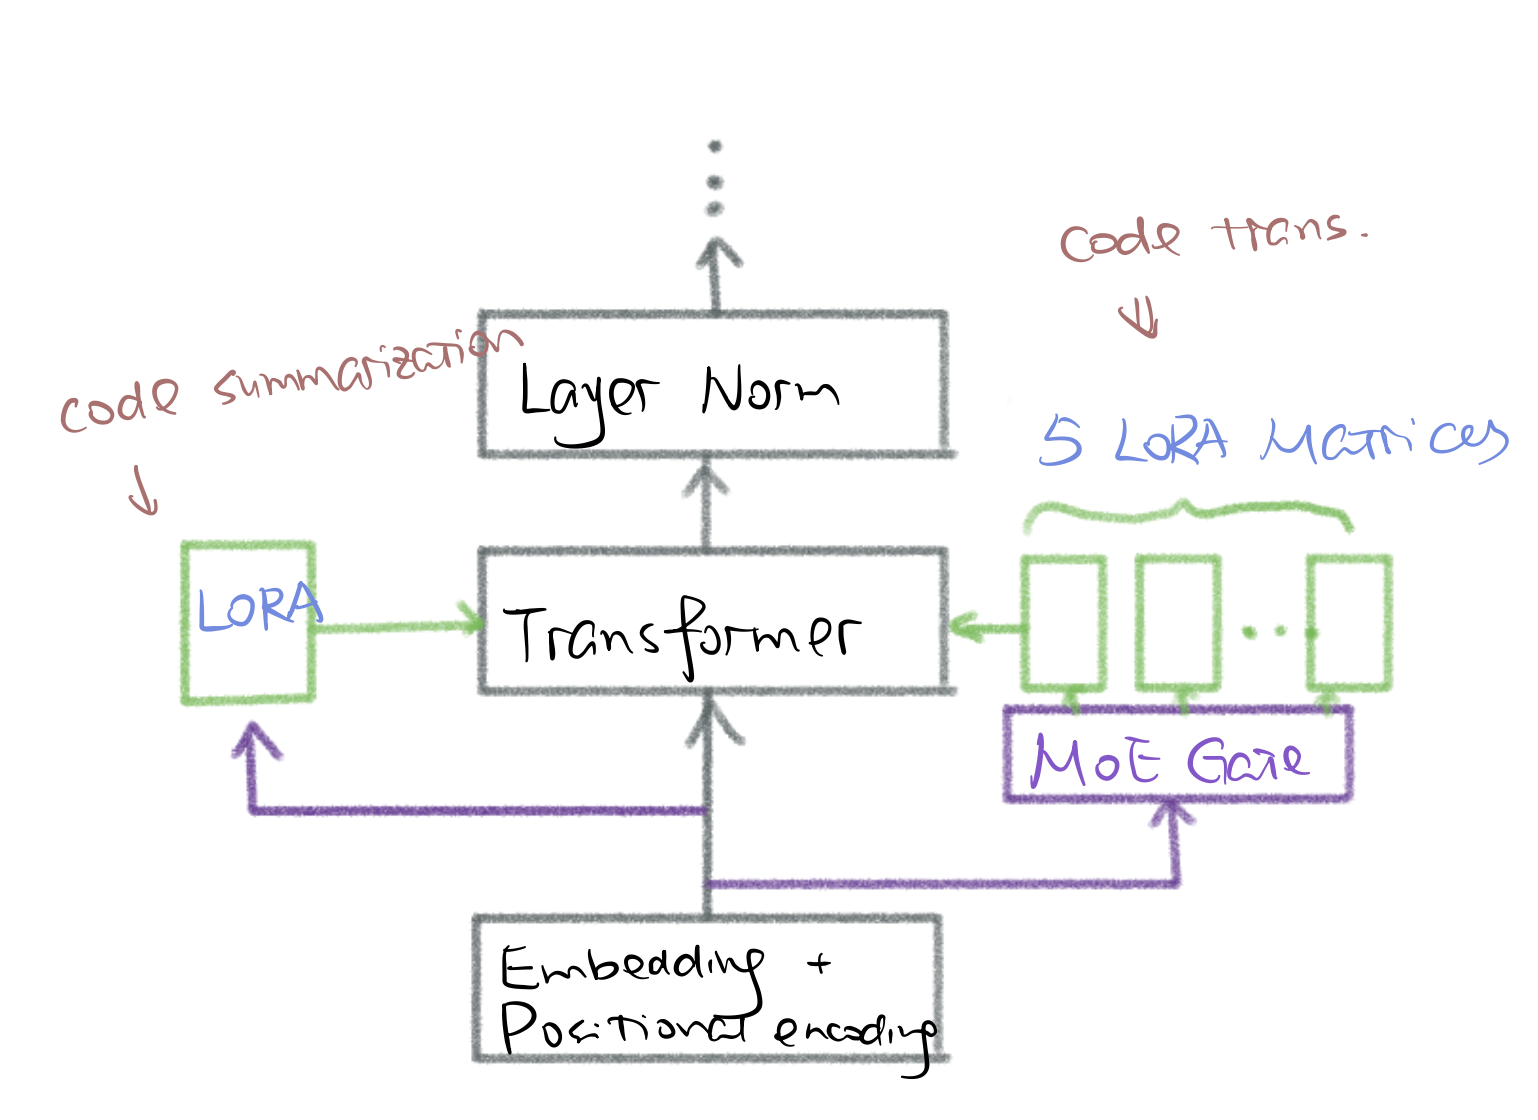 code trans.
code summarization
Layer Norm
5 LoRA Matrices
LORA
Transformer
MoE Gate
Embedding +
Positional encoding